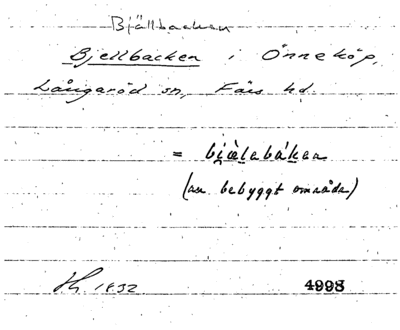 Bjällbacken
Bjellbacken i Önneköp,
Långaröd sn, Färs hd.
= bjälabákan
(nu bebyggt område)
1932
4998